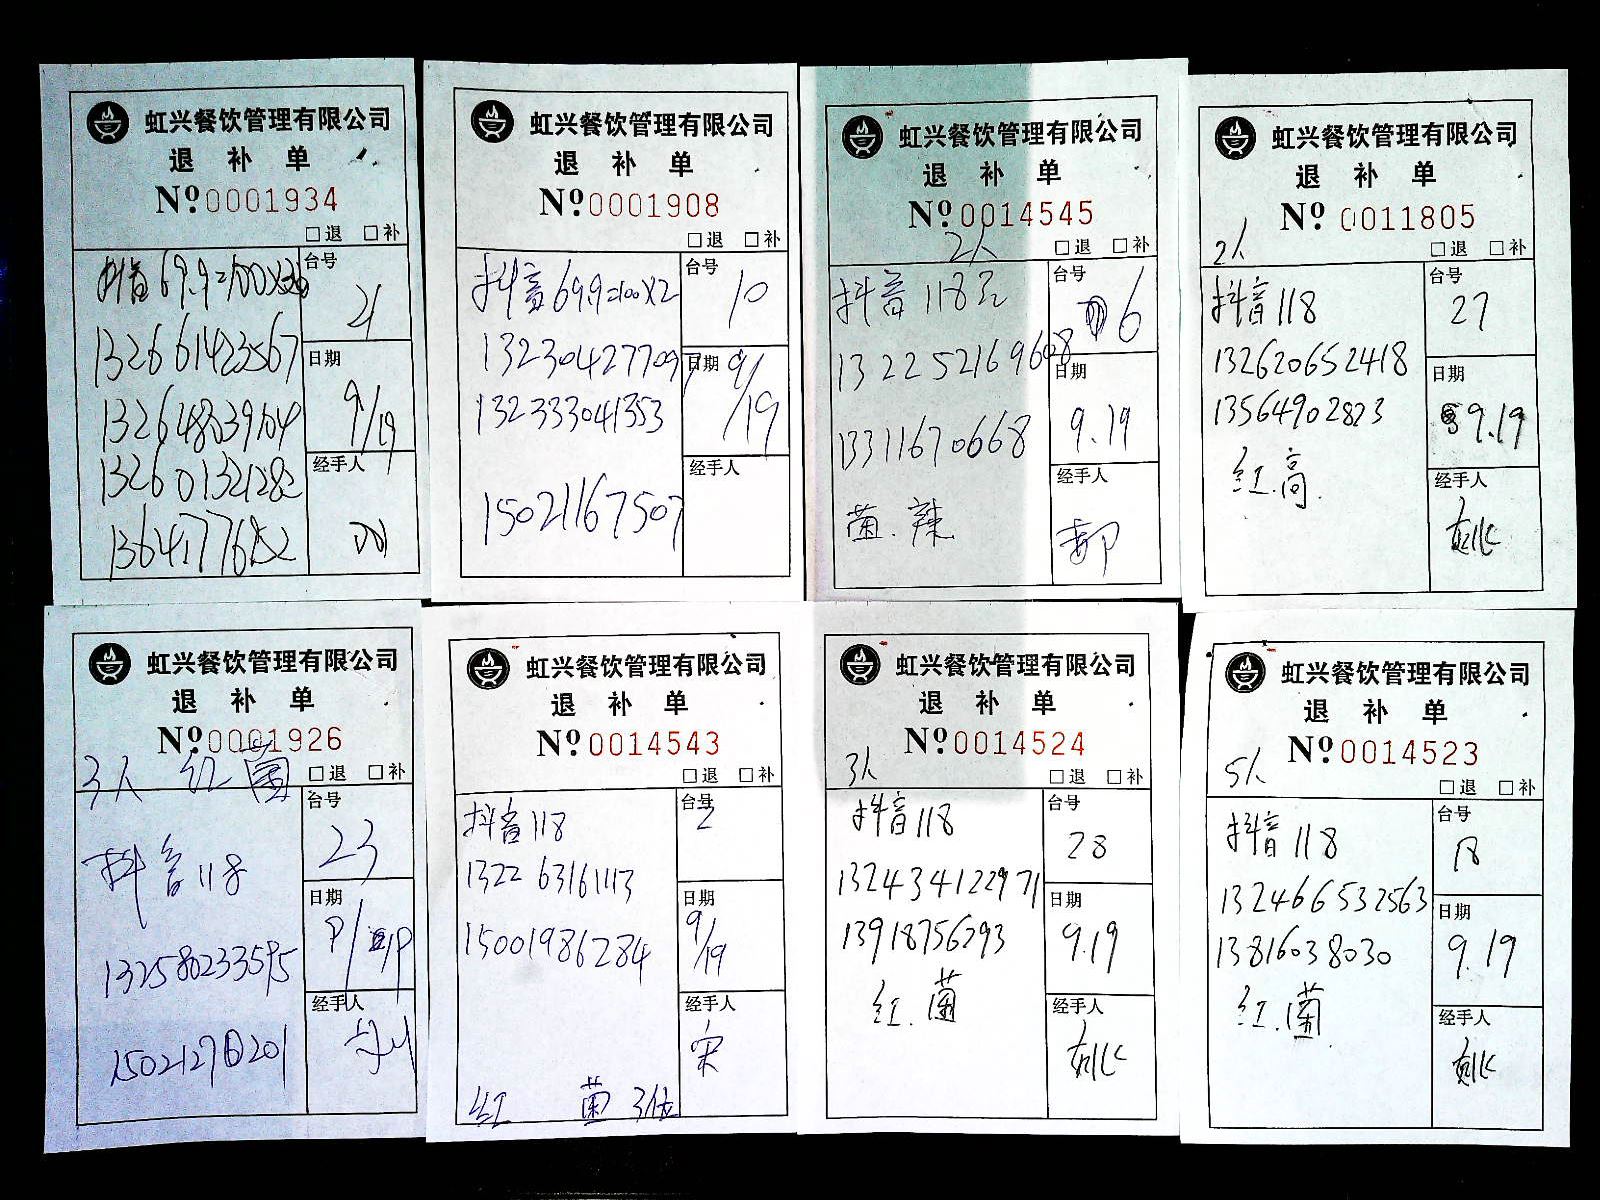 虹兴餐饮管理有限公司
退 补 单
Nº 0001934
□退 □补
抖音 69.9=100X3
台号
21
132661423567
日期
9/19
132648039104
132601321282
经手人
13641776152
虹兴餐饮管理有限公司
退 补 单
Nº 0001908
□退 □补
抖音 69.9=100X2
台号
10
132304277097
日期
9/19
132333041353
经手人
15021167507
虹兴餐饮管理有限公司
退 补 单
Nº 0014545
2人
□退 □补
抖音 118元
台号
6
1322521696
日期
9.19
13311670668
经手人
郝
菌.辣
虹兴餐饮管理有限公司
退 补 单
Nº 0011805
2人
□退 □补
抖音 118
台号
27
132620652418
日期
9.19
13564902823
红.高
经手人
虹兴餐饮管理有限公司
退 补 单
Nº 0001926
3人 红 菌
□退 □补
台号
23
抖音 118
日期
132580233595
经手人
虹兴餐饮管理有限公司
退 补 单
Nº 0014543
□退 □补
抖音 118
台号
2
132263161113
日期
9/19
15001986284
经手人
宋
红 菌 3位
虹兴餐饮管理有限公司
退 补 单
Nº 0014524
3人
□退 □补
抖音 118
台号
28
132434122971
日期
9.19
13918756293
红.菌
经手人
虹兴餐饮管理有限公司
退 补 单
Nº 0014523
5人
□退 □补
抖音 118
台号
18
132466532563
日期
9.19
13816038030
红.菌
经手人